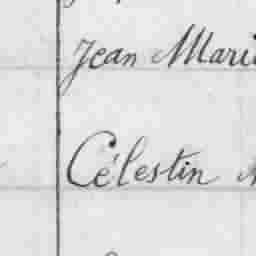 Jean Mari
Célestin